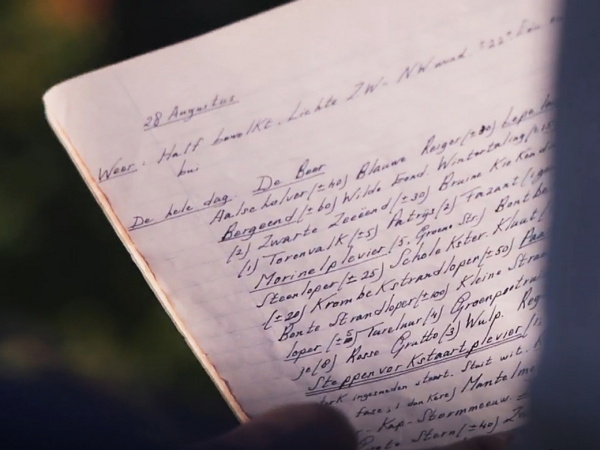 28 Augustus
Weer. Half bewolkt. Lichte ZW - NW wind ± 22°
bui
De hele dag. De Beer
Aalscholver (±40) Blauwe Reiger (±80) Lepelaar
Bergeend (±60) Wilde Eend. Wintertaling (±
(2) Zwarte Zeeëend (±30) Bruine Kiekendief
(1) Torenvalk (±5) Patrijs (2) Fazant (
Morinelplevier (5, Groene Str.) Bont be
Steenloper (±25) Scholekster. Kluut (
(±20) Krombekstrandloper (±50)
Bonte Strandloper (±100) Kleine Stran
loper (±5) Tureluur (4) Groenpootrui
je (8) Rosse Grutto (3) Wulp. Reg
Steppenvorkstaartplevier (1,
sterk ingesneden staart. Stuit wit.
Mantelme
Kap-Stormmeeuw.
Grote Stern (±40)